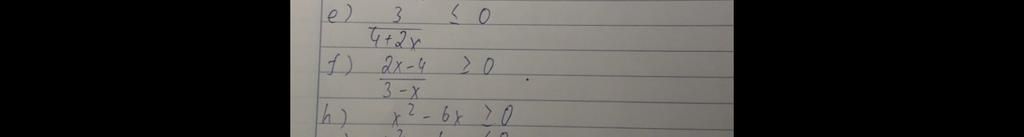 e) 3/(4+2x) ≤ 0
f) (2x-4)/(3-x) ≥ 0
h) x² - 6x ≥ 0